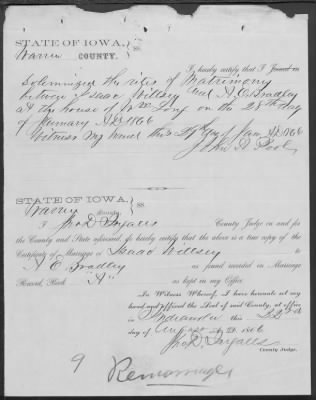 STATE OF IOWA,
Warren COUNTY. } SS.
I hereby certify that I Joined in
Solemnized the rites of Matrimony
between Isaac Willsey and A. E. Bradley
at the house of Wm Long on the 28th day
of January A.D. 1866
Witness my hand this 29th day Jan A.D. 1866
John D. Pool
STATE OF IOWA,
Warren County. } SS.
I Jno D. Ingalls County Judge in and for
the County and State aforesaid, do hereby certify that the above is a true copy of the
Certificate of Marriage of Isaac Willsey
to A E Bradley as found recorded in Marriage
Record, Book "A" as kept in my Office.
In Witness Whereof, I have hereunto set my
hand and affixed the Seal of said County, at office
in Indianola this 22nd
day of August A.D. 1866
Jno D. Ingalls
County Judge.
9
Remarriage